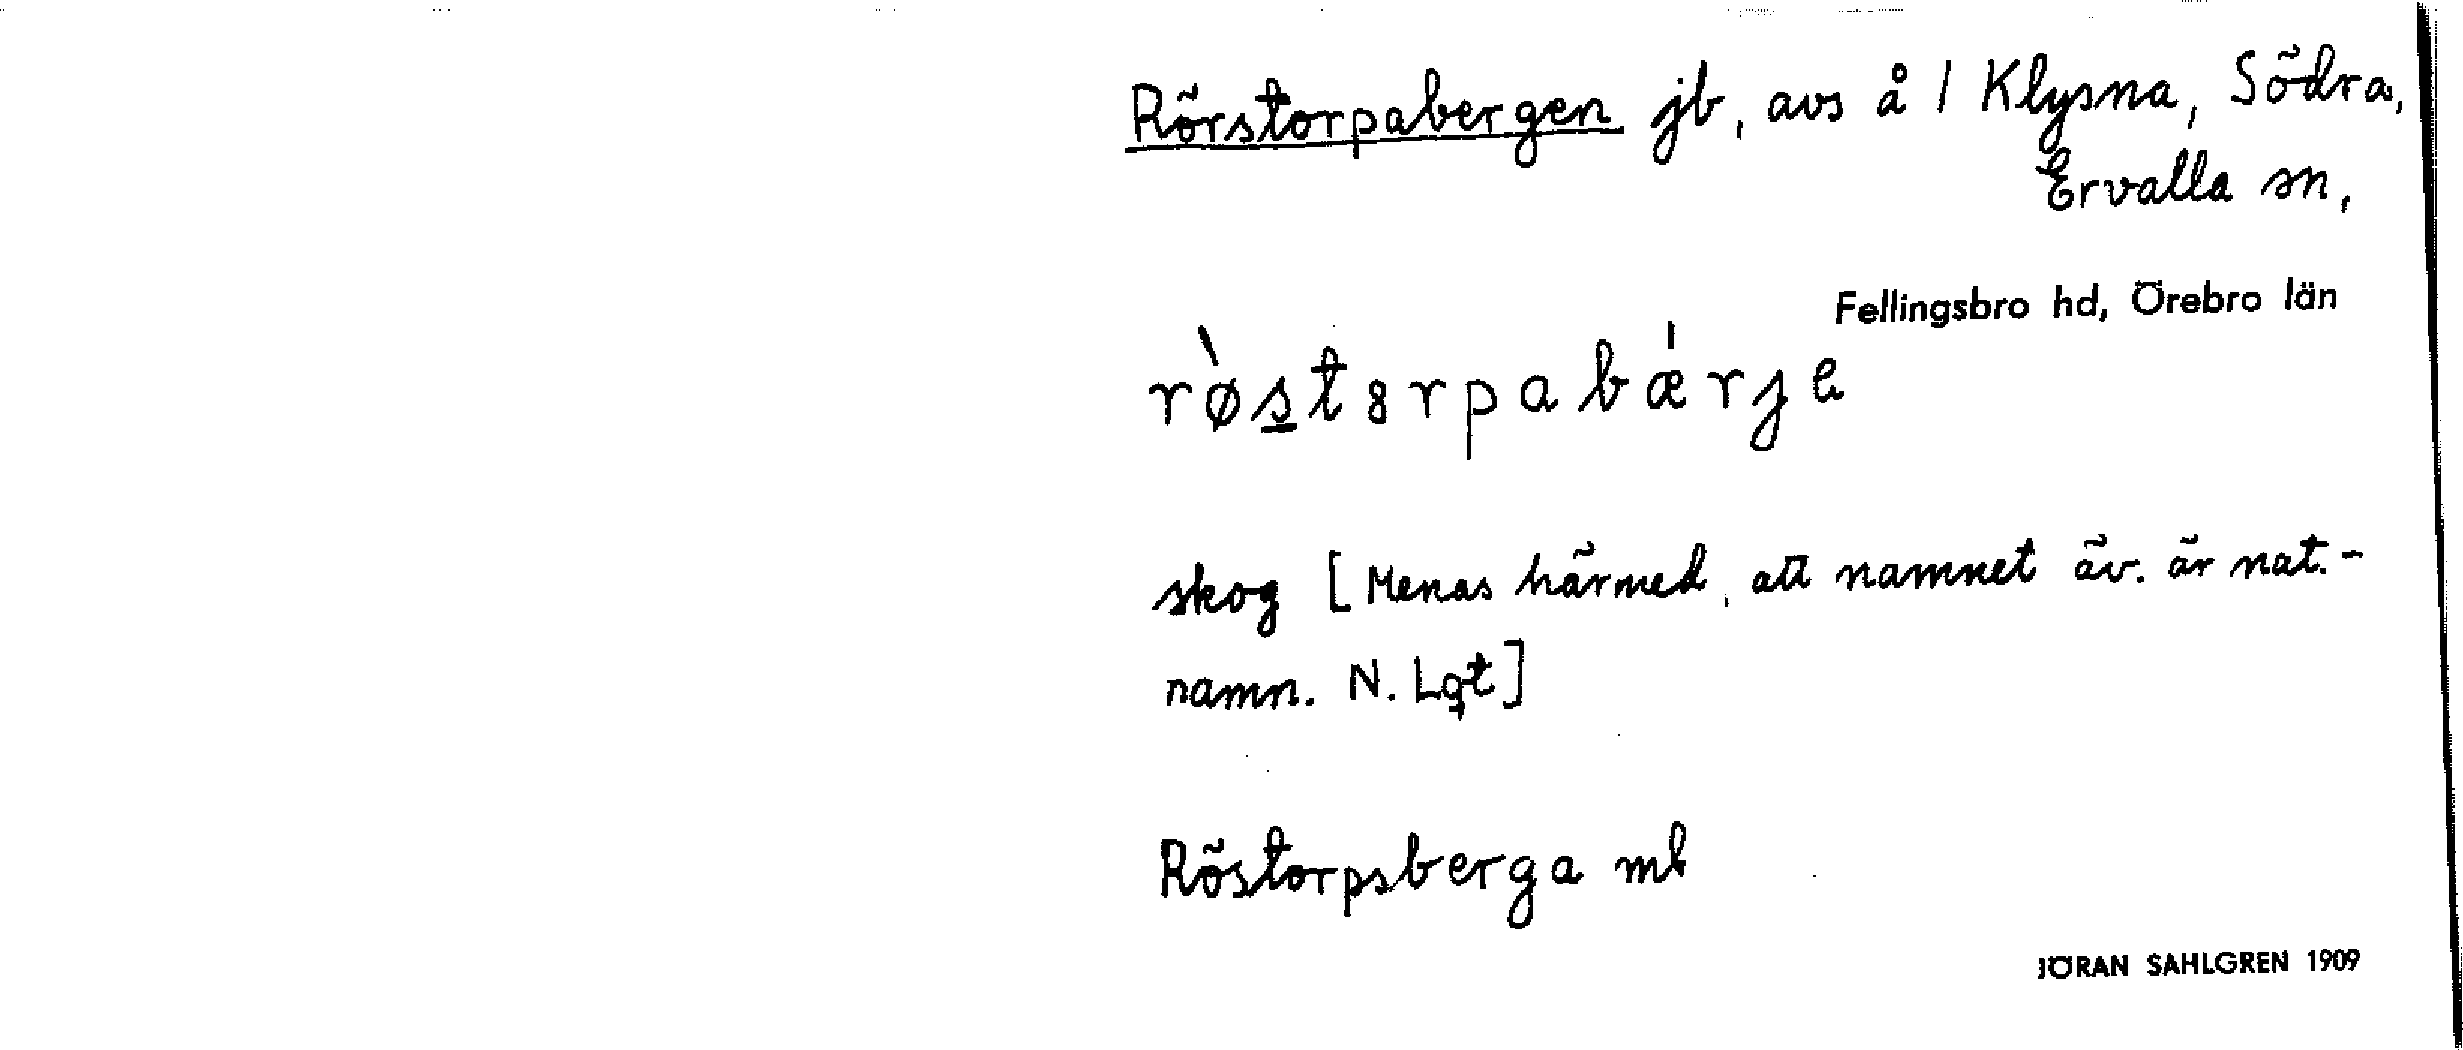 Rörstorpabergen jb, avs å / Klysna, Södra,
Ervalla sn,
Fellingsbro hd, Örebro län
rø̀st8rpabǽrje
skog [Menas härmed, att namnet äv. är nat.-
namn. N. Lgt]
Röstorpsberga mb
JÖRAN SAHLGREN 1909